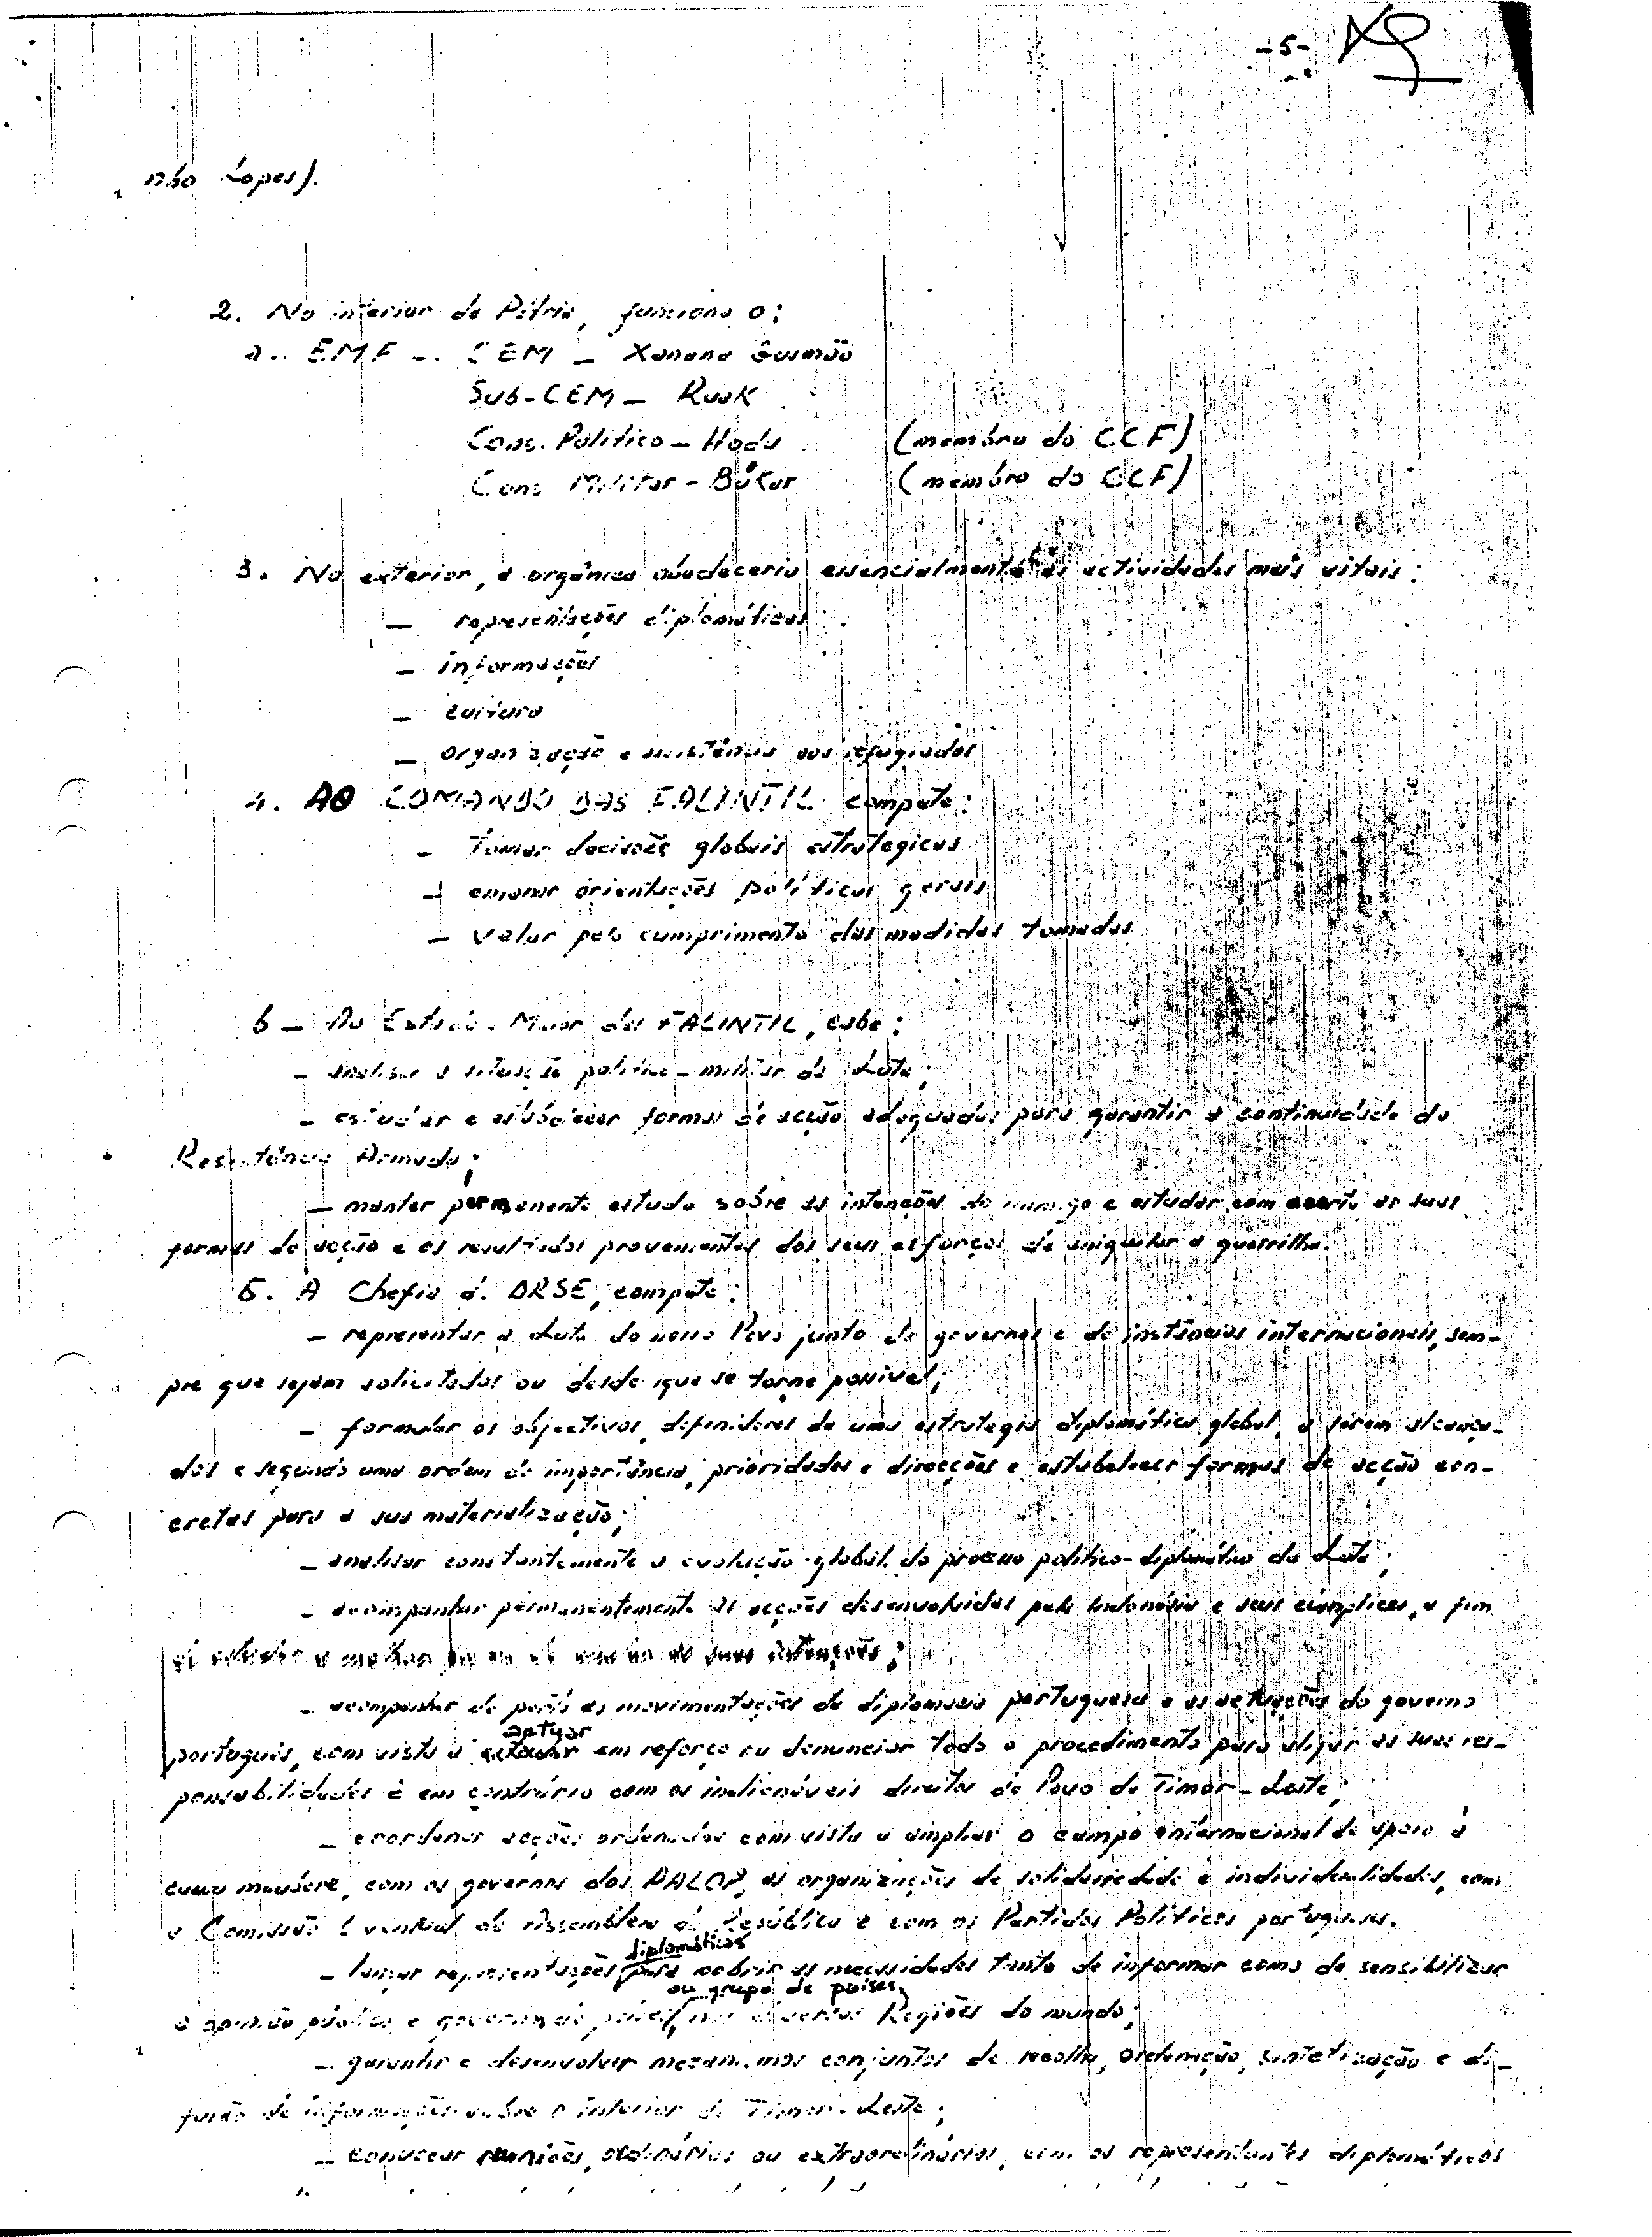 -5-
nho Lopes).
2. No interior da Pátria, funciona o:
a.. EMF -. CEM - Xanana Gusmão
Sub-CEM - Ruak
Cons. Político - Hodu (membro do CCF)
Cons Militar - Búkar (membro do CCF)
3. No exterior, a orgânica obedeceria essencialmente às actividades mais vitais:
- representações diplomáticas
- informações
- cultura
- organização e assistência aos refugiados
4. AO COMANDO DAS FALINTIL compete:
- tomar decisões globais estrategicas
- emanar orientações políticas gerais
- velar pelo cumprimento das medidas tomadas
6 - Ao Estado-Maior das FALINTIL, cabe:
- analisar a situação politico-militar da Luta;
- estudar e estabelecer formas de acção adequadas para garantir a continuidade da
Resistência Armada;
- manter permanente estudo sobre as intenções do inimigo e estudar com acerto as suas
formas de acção e os resultados provenientes dos seus esforços de aniquilar a guerrilha.
5. À Chefia da DRSE, compete:
- representar a Luta do nosso Povo junto de governos e de instâncias internacionais, sem-
pre que sejam solicitados ou desde que se torne possivel;
- formular os objectivos, definidores de uma estrategia diplomática global, a serem alcança-
dos e segundo uma ordem de importância, prioridades e direcções e estabelecer formas de acção con-
cretas para a sua materialização;
- analisar constantemente a evolução global do processo politico-diplomático da Luta;
- acompanhar permanentemente as acções desenvolvidas pela Indonésia e seus cúmplices, a fim
de estudar a melhor suas intenções;
- acompanhar de perto as movimentações da diplomacia portuguesa e as actuações do governo
português, com vista a actuar em reforço ou denunciar todo o procedimento para alijar as suas res-
ponsabilidades e em contrário com os inalienáveis direitos do Povo de Timor-Leste;
- coordenar acções ordenadas com vista a ampliar o campo internacional de apoio à
causa maubere, com os governos dos PALOP, as organizações de solidariedade e individualidades, com
a Comissão Eventual da Assembleia da República e com os Partidos Políticos portugueses.
- lançar representações diplomáticas para cobrir as necessidades tanto de informar como de sensibilizar
a opinião pública e governos de países, ou grupo de países, nas diversas Regiões do mundo;
- garantir e desenvolver mecanismos conjuntos de recolha, ordenação, sintetização e di-
fusão de informações sobre o interior de Timor-Leste;
- convocar reuniões, ordinárias ou extraordinárias, com os representantes diplomáticos